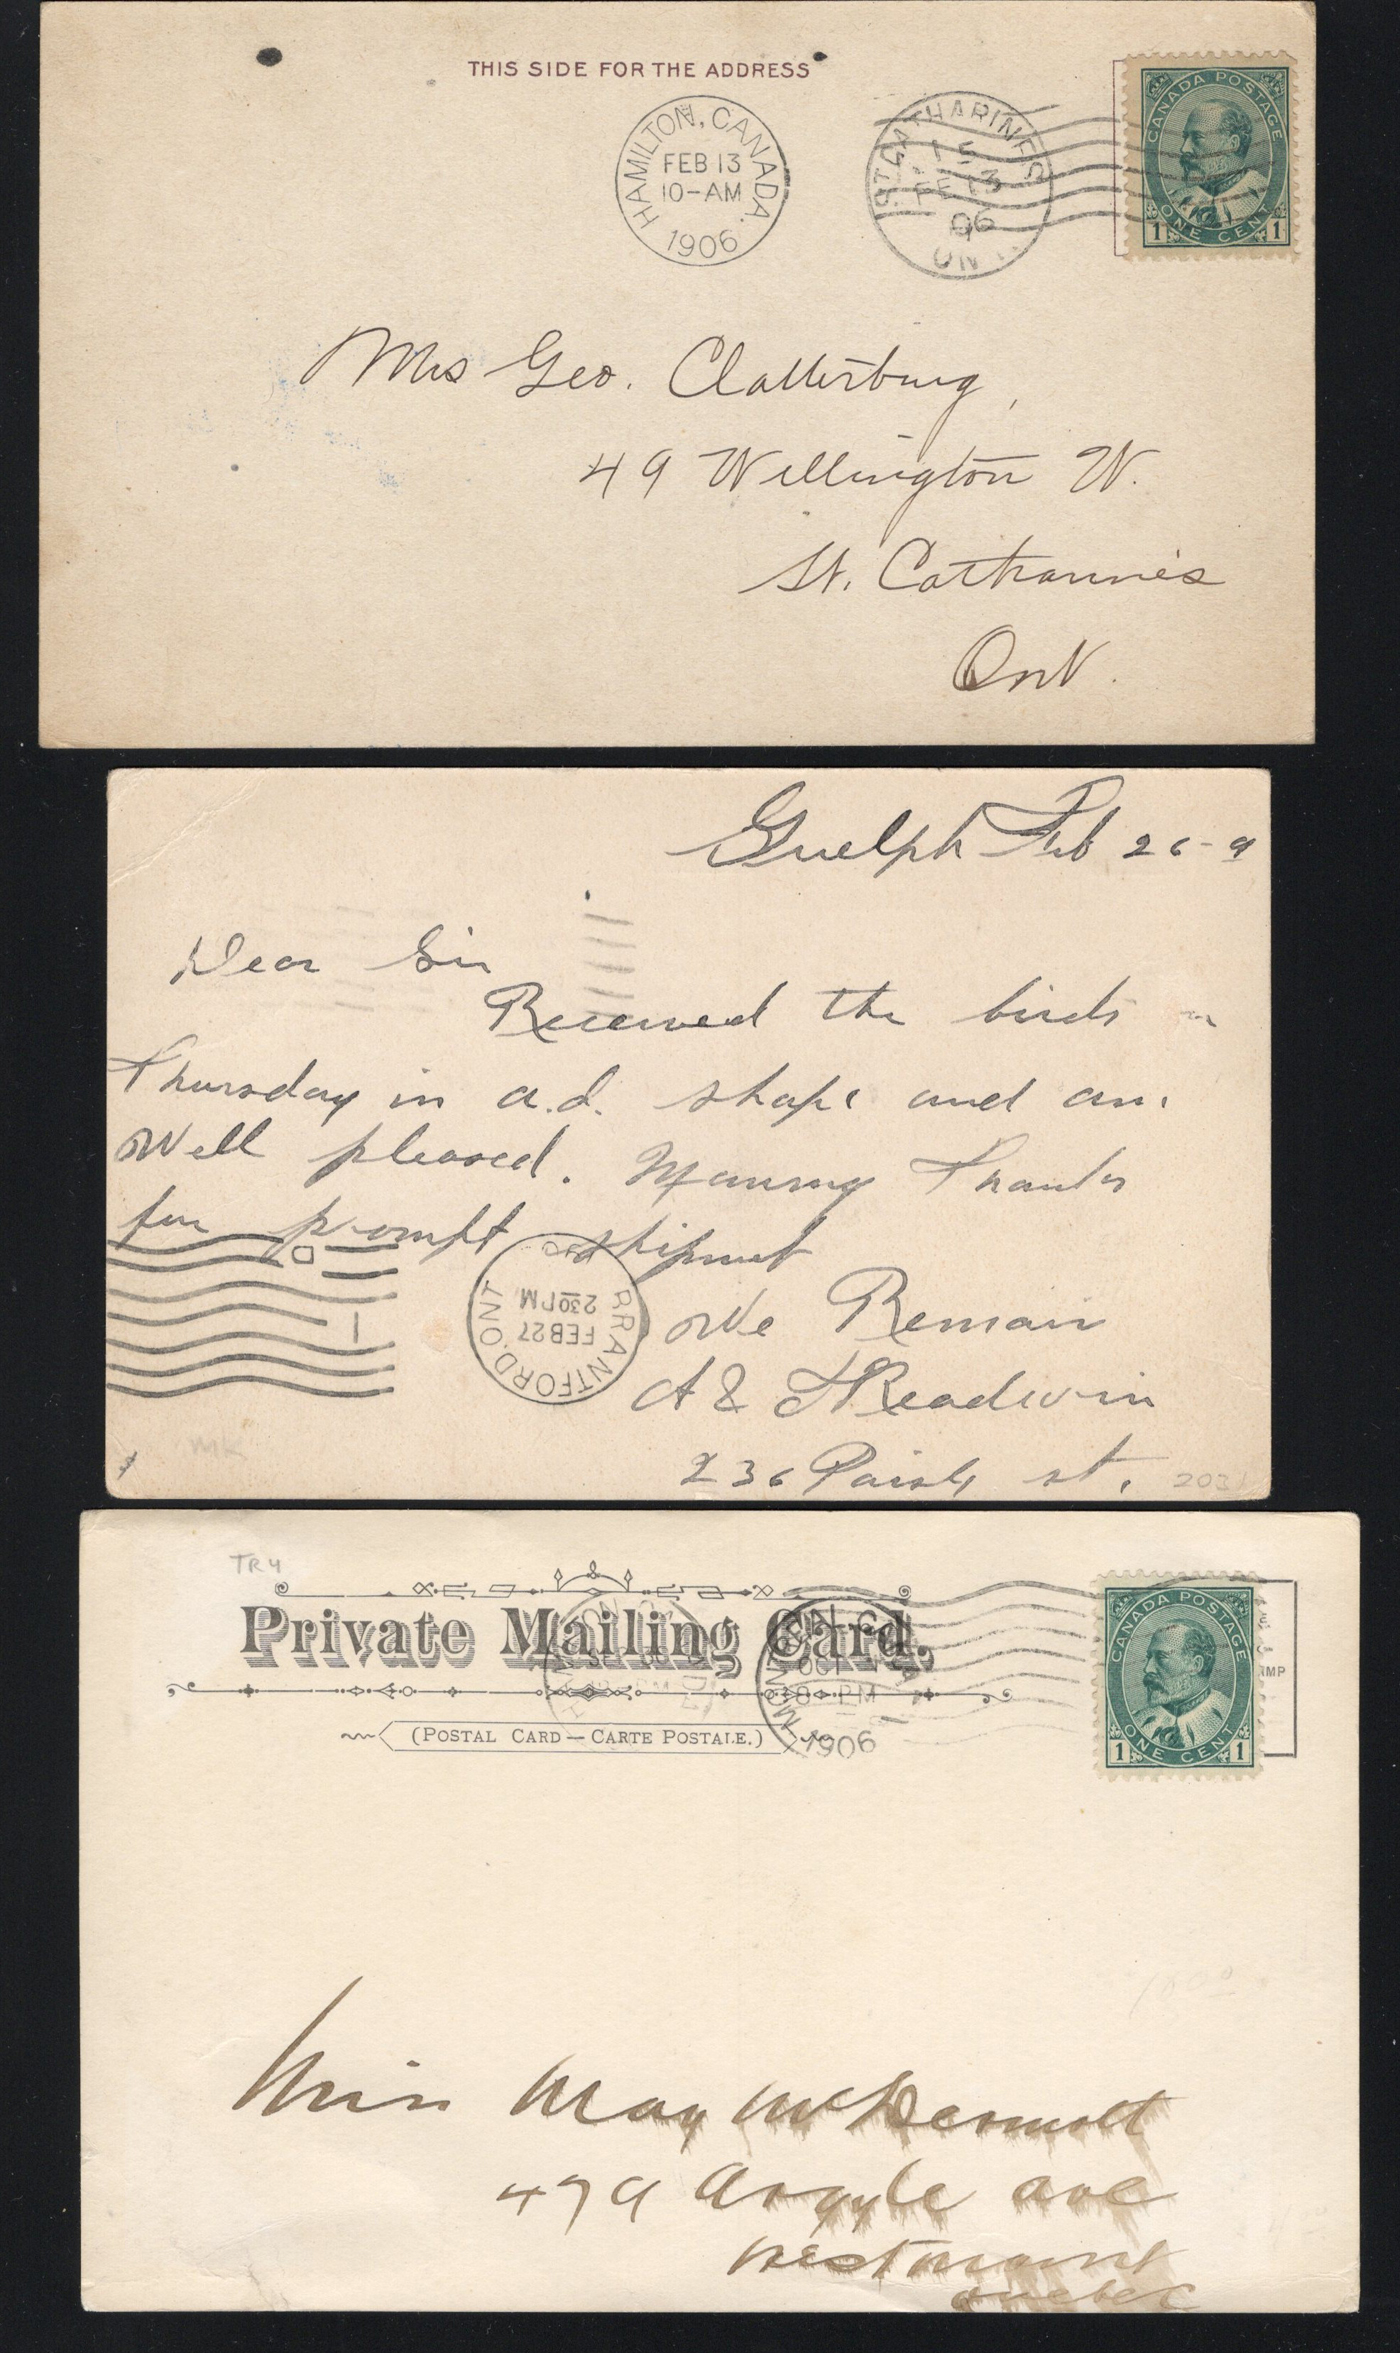 THIS SIDE FOR THE ADDRESS
HAMILTON, CANADA.
FEB 13
10-AM
1906
ST CATHARINES
15
FE 13
06
ON
CANADA POSTAGE
1 ONE CENT 1
Mrs Geo. Clatterburg,
49 Wellington W.
St. Catharines
Ont.
Guelph Feb 26-9
Dear Sir
Received the birds
Thursday in a.d. shape and am
Well pleased. Manny Thanks
for prompt shipmet
We Remain
A & H Readwin
236 Paisly st.
BRANTFORD. ONT
FEB 27
230 PM
MK
203
TR4
Private Mailing Card.
(POSTAL CARD — CARTE POSTALE.)
MONTREAL CANADA
OCT
8-PM
1906
CANADA POSTAGE
1 ONE CENT 1
Miss May McDermott
479 Argyle ave
Westmount
Quebec